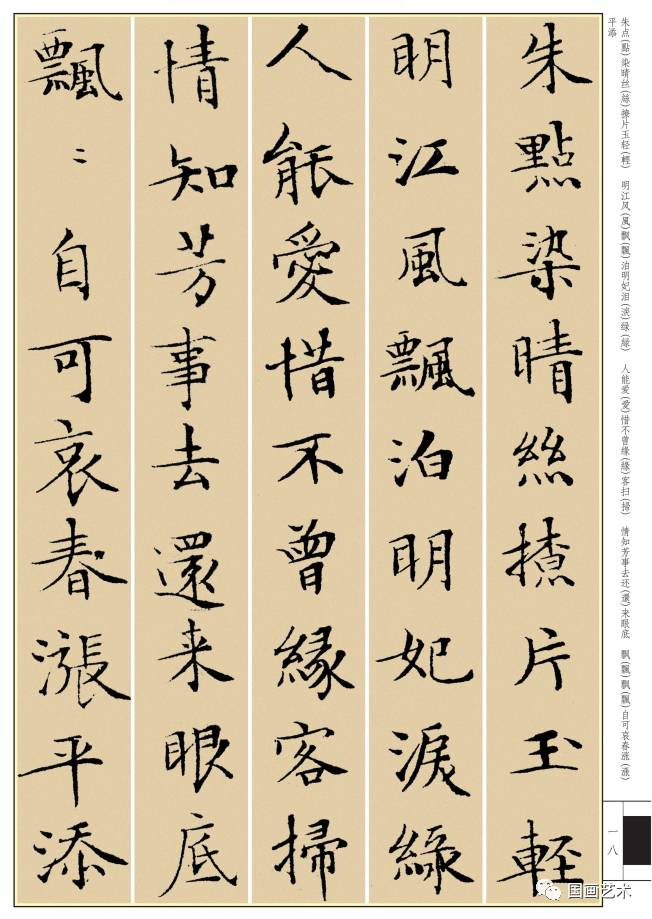 朱点(點)染晴丝(絲)撩片玉轻(輕)　明江风(風)飘(飄)泊明妃泪(淚)绿(綠)　人能爱(愛)惜不曾缘(緣)客扫(掃)　情知芳事去还(還)来眼底　飘(飄)飘(飄)自可哀春涨(漲)
平添
朱點染晴絲撩片玉輕
明江風飄泊明妃淚綠
人能愛惜不曾緣客掃
情知芳事去還来眼底
飄〻自可哀春漲平添
一八
国画艺术